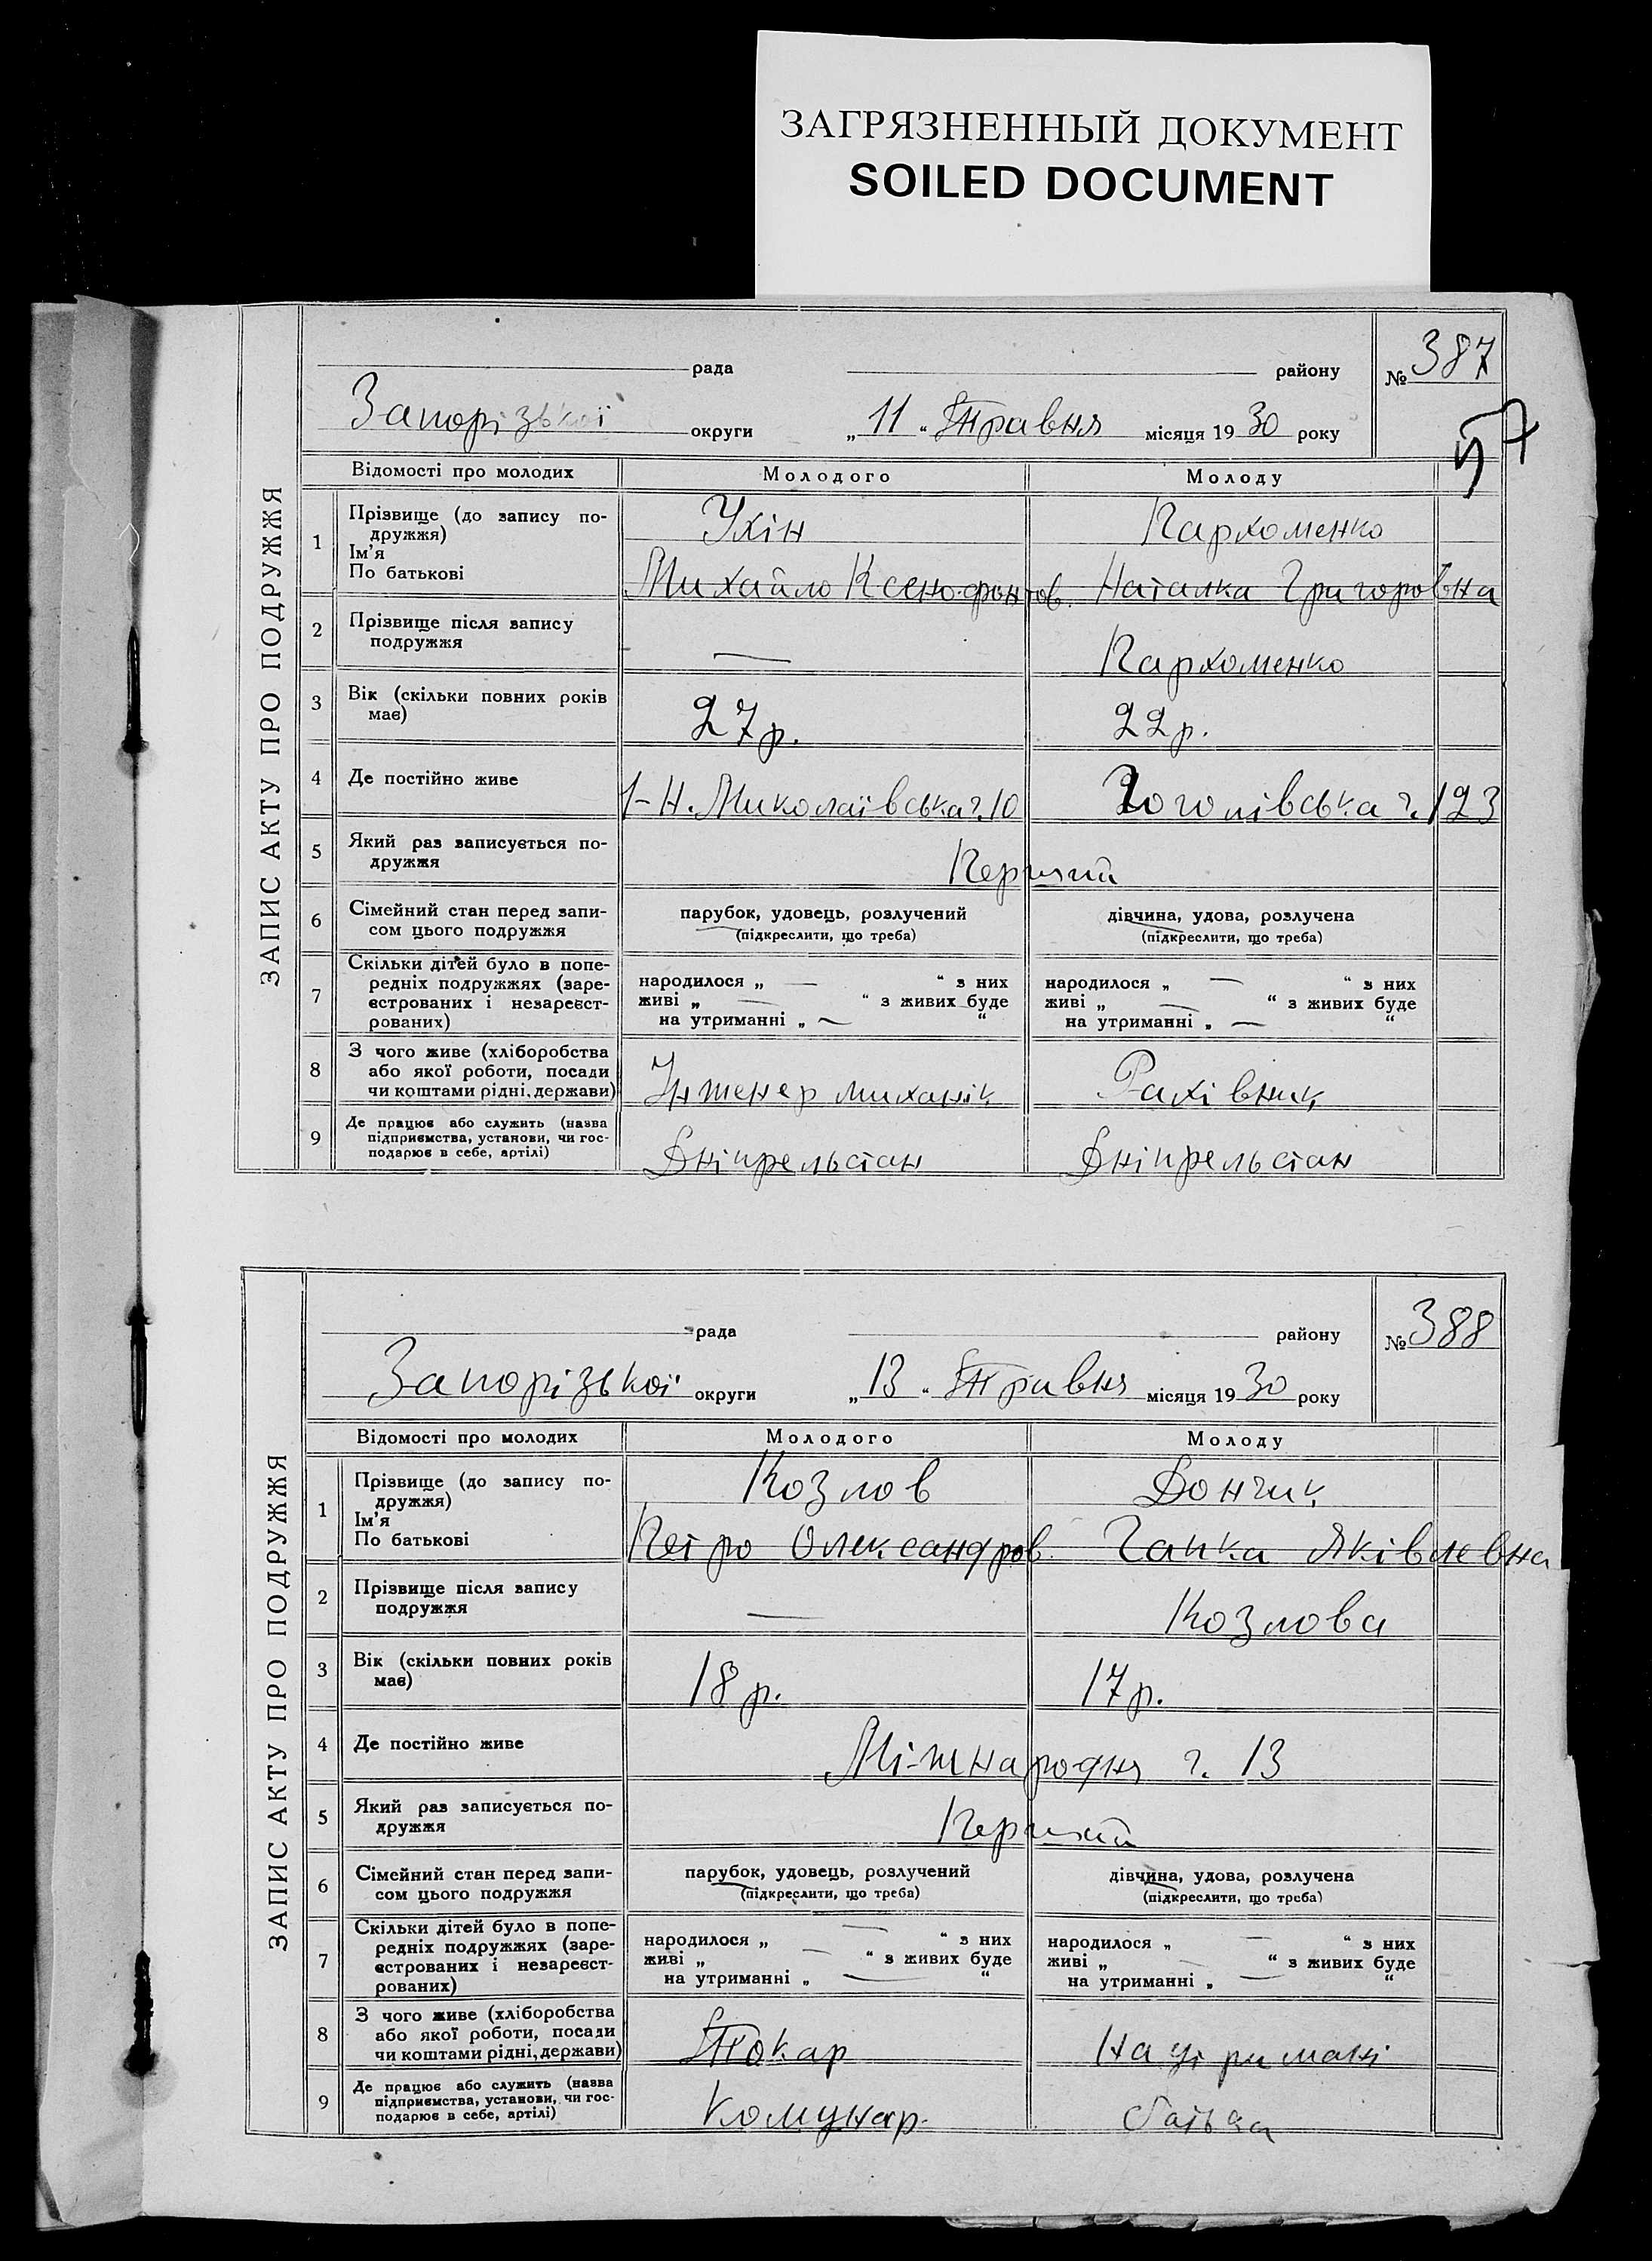 ЗАГРЯЗНЕННЫЙ ДОКУМЕНТ
SOILED DOCUMENT
ЗАПИС АКТУ ПРО ПОДРУЖЖЯ
рада району № 387
Запорізької округи „11“ Травня місяця 1930 року
57
Відомості про молодих Молодого Молоду
1 Прізвище (до запису по-
дружжя)
Ухін Пархоменко
Ім'я
По батькові
Михайло Ксенофонтов. Наталка Григоровна
2 Прізвище після запису
подружжя
— Пархоменко
3 Вік (скільки повних років
має)
27 р. 22 р.
4 Де постійно живе 1-Н. Миколаївська ч. 10 Гоголівська ч. 123
5 Який раз записується по-
дружжя
Перший
6 Сімейний стан перед запи-
сом цього подружжя
парубок, удовець, розлучений
(підкреслити, що треба)
дівчина, удова, розлучена
(підкреслити, що треба)
7 Скільки дітей було в попе-
редніх подружжях (заре-
єстрованих і незареєст-
рованих)
народилося „ — “ з них
живі „ — “ з живих буде
на утриманні „ — “
народилося „ — “ з них
живі „ — “ з живих буде
на утриманні „ — “
8 З чого живе (хліборобства
або якої роботи, посади
чи коштами рідні, держави)
Інженер миханік Рахівник
9 Де працює або служить (назва
підприємства, установи, чи гос-
подарює в себе, артілі)
Дніпрельстан Дніпрельстан
ЗАПИС АКТУ ПРО ПОДРУЖЖЯ
рада району № 388
Запорізької округи „13“ Травня місяця 1930 року
Відомості про молодих Молодого Молоду
1 Прізвище (до запису по-
дружжя)
Козлов Дончик
Ім'я
По батькові
Петро Олександров. Гапка Яківлевна
2 Прізвище після запису
подружжя
— Козлова
3 Вік (скільки повних років
має)
18 р. 17 р.
4 Де постійно живе Міжнародня ч. 13
5 Який раз записується по-
дружжя
Перший
6 Сімейний стан перед запи-
сом цього подружжя
парубок, удовець, розлучений
(підкреслити, що треба)
дівчина, удова, розлучена
(підкреслити, що треба)
7 Скільки дітей було в попе-
редніх подружжях (заре-
єстрованих і незареєст-
рованих)
народилося „ — “ з них
живі „ — “ з живих буде
на утриманні „ — “
народилося „ — “ з них
живі „ — “ з живих буде
на утриманні „ — “
8 З чого живе (хліборобства
або якої роботи, посади
чи коштами рідні, держави)
Токар На утримані
9 Де працює або служить (назва
підприємства, установи, чи гос-
подарює в себе, артілі)
Комунар. батька